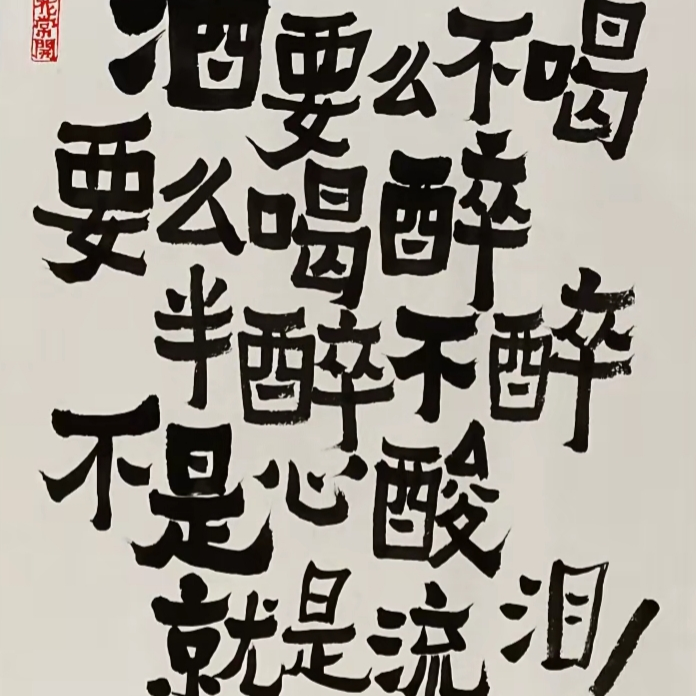 酒要么不喝
要么喝醉
半醉不醉
不是心酸
就是流泪